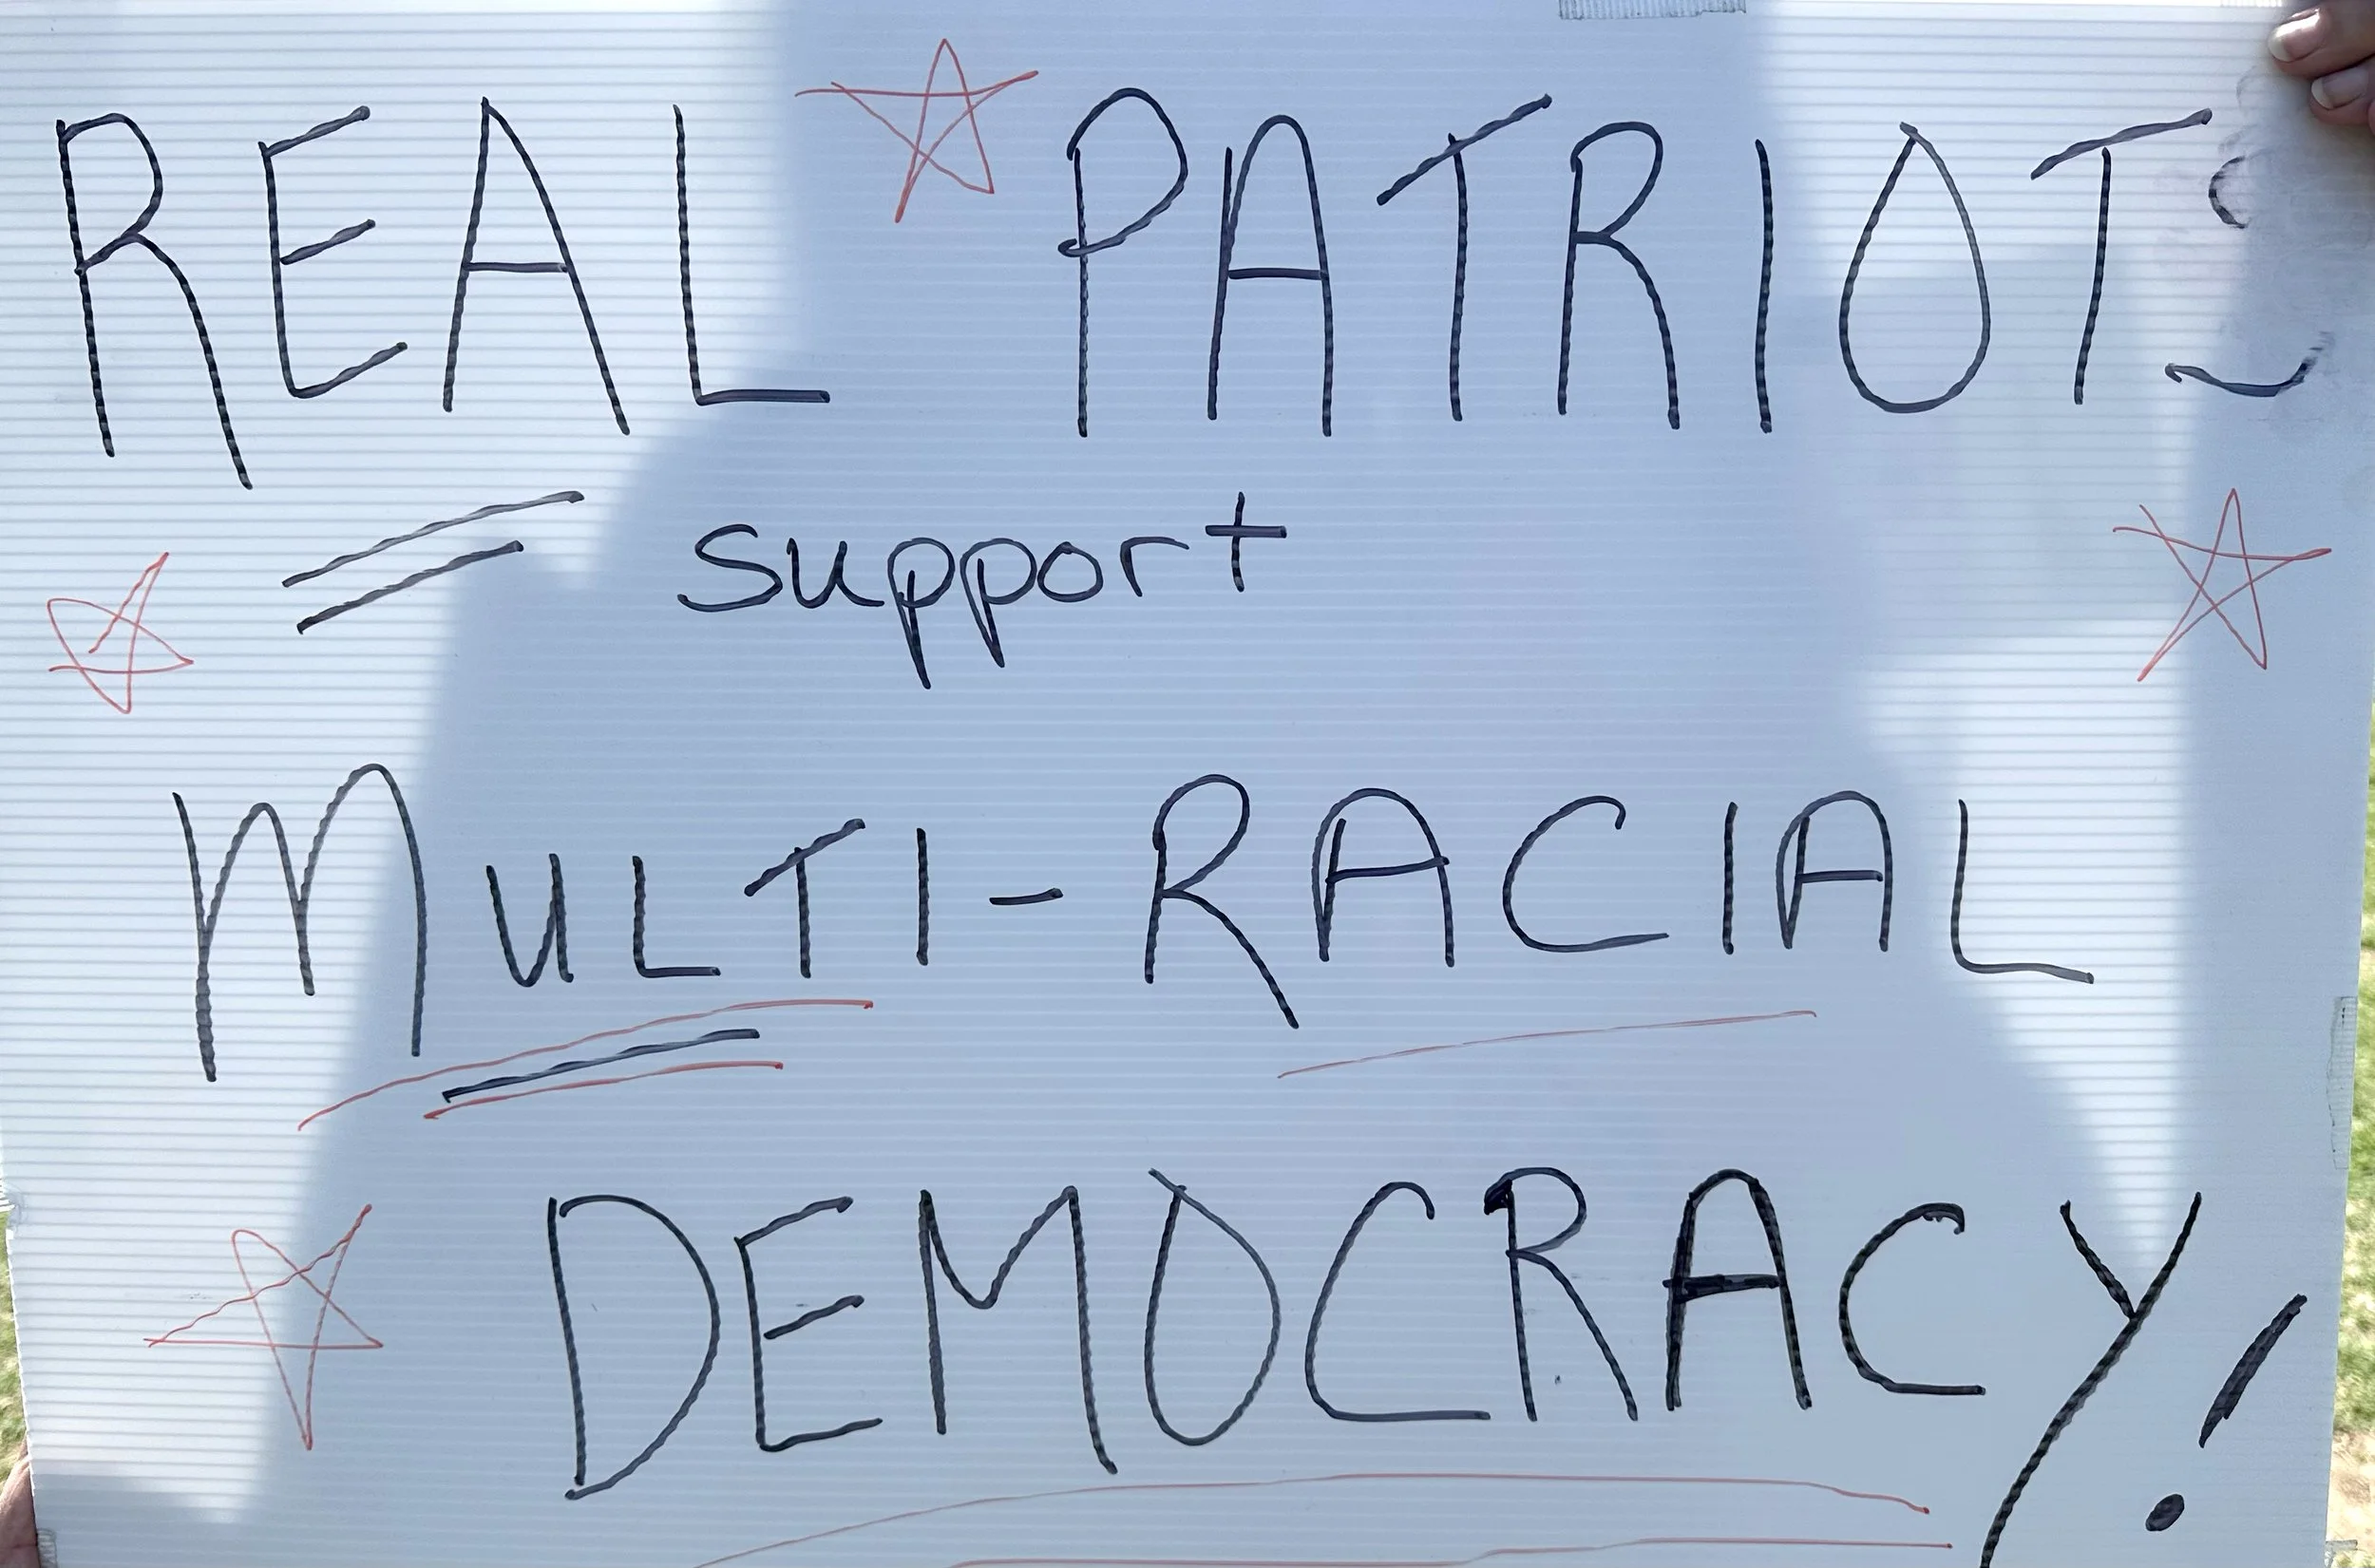 REAL PATRIOTS
support
MULTI-RACIAL
DEMOCRACY!